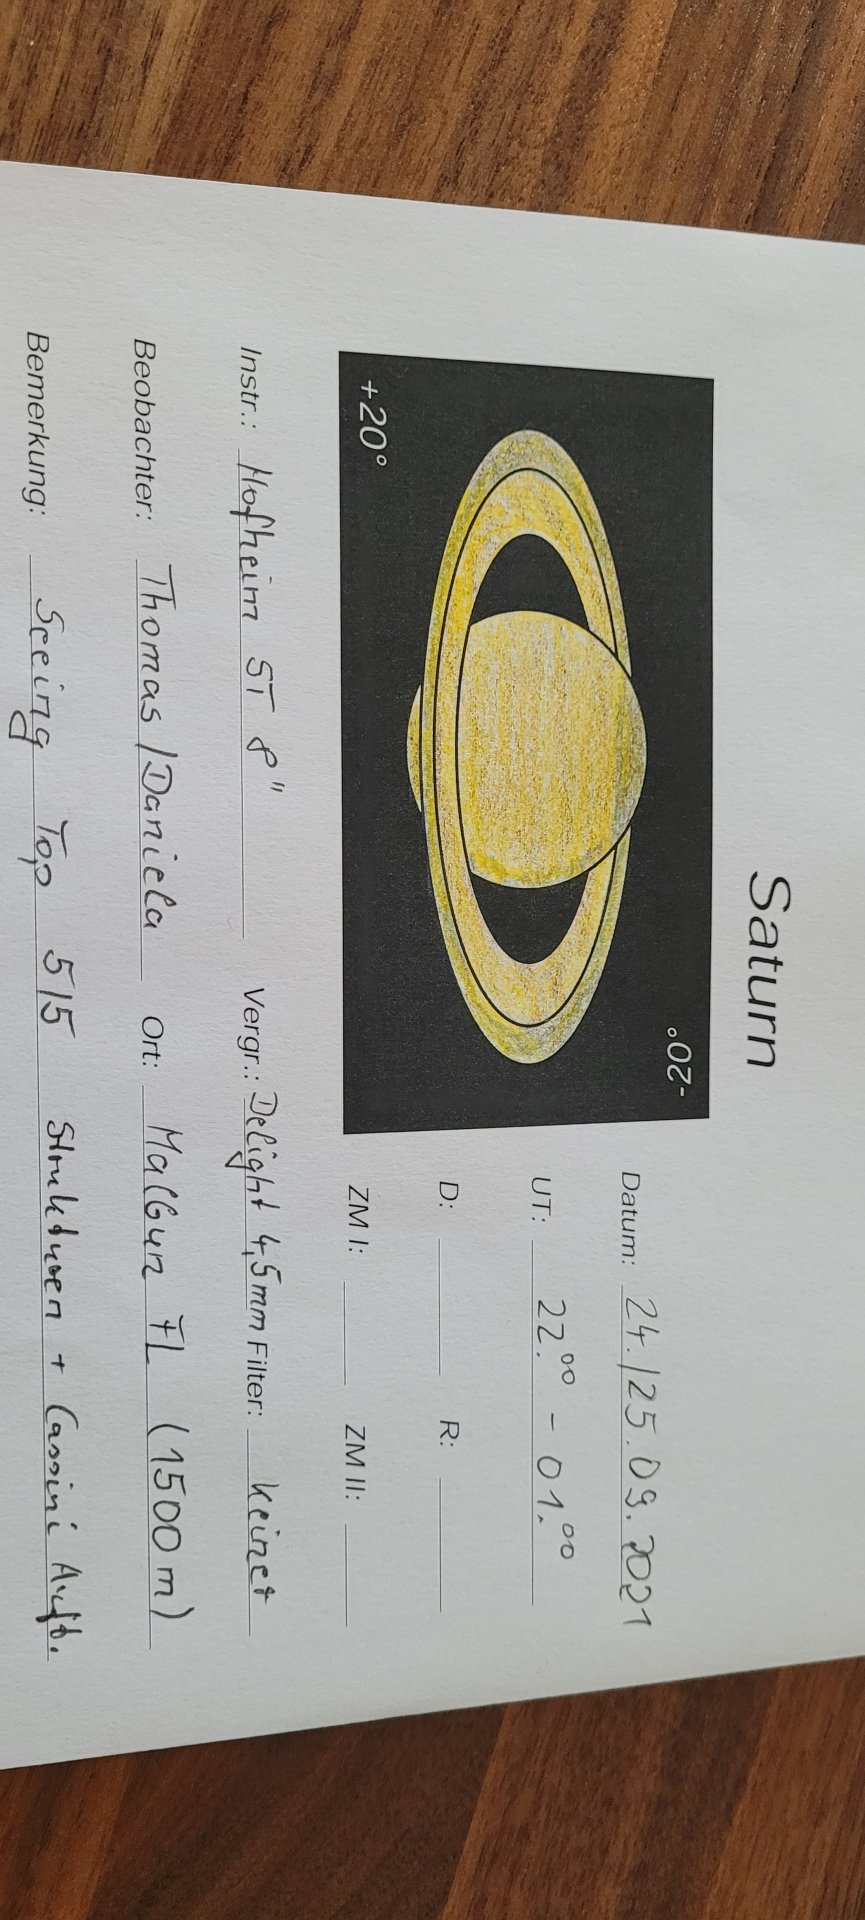 Saturn
-20°
+20°
Datum: 24./25.09.2021
UT: 22.⁰⁰ - 01.⁰⁰
D: R:
ZM I: ZM II:
Instr.: Hofheim ST 8" Vergr.: Delight 4,5mm Filter: keiner
Beobachter: Thomas/Daniela Ort: Malbun FL (1500m)
Bemerkung: Seeing Top 5/5 Strukturen + Cassini Aufl.